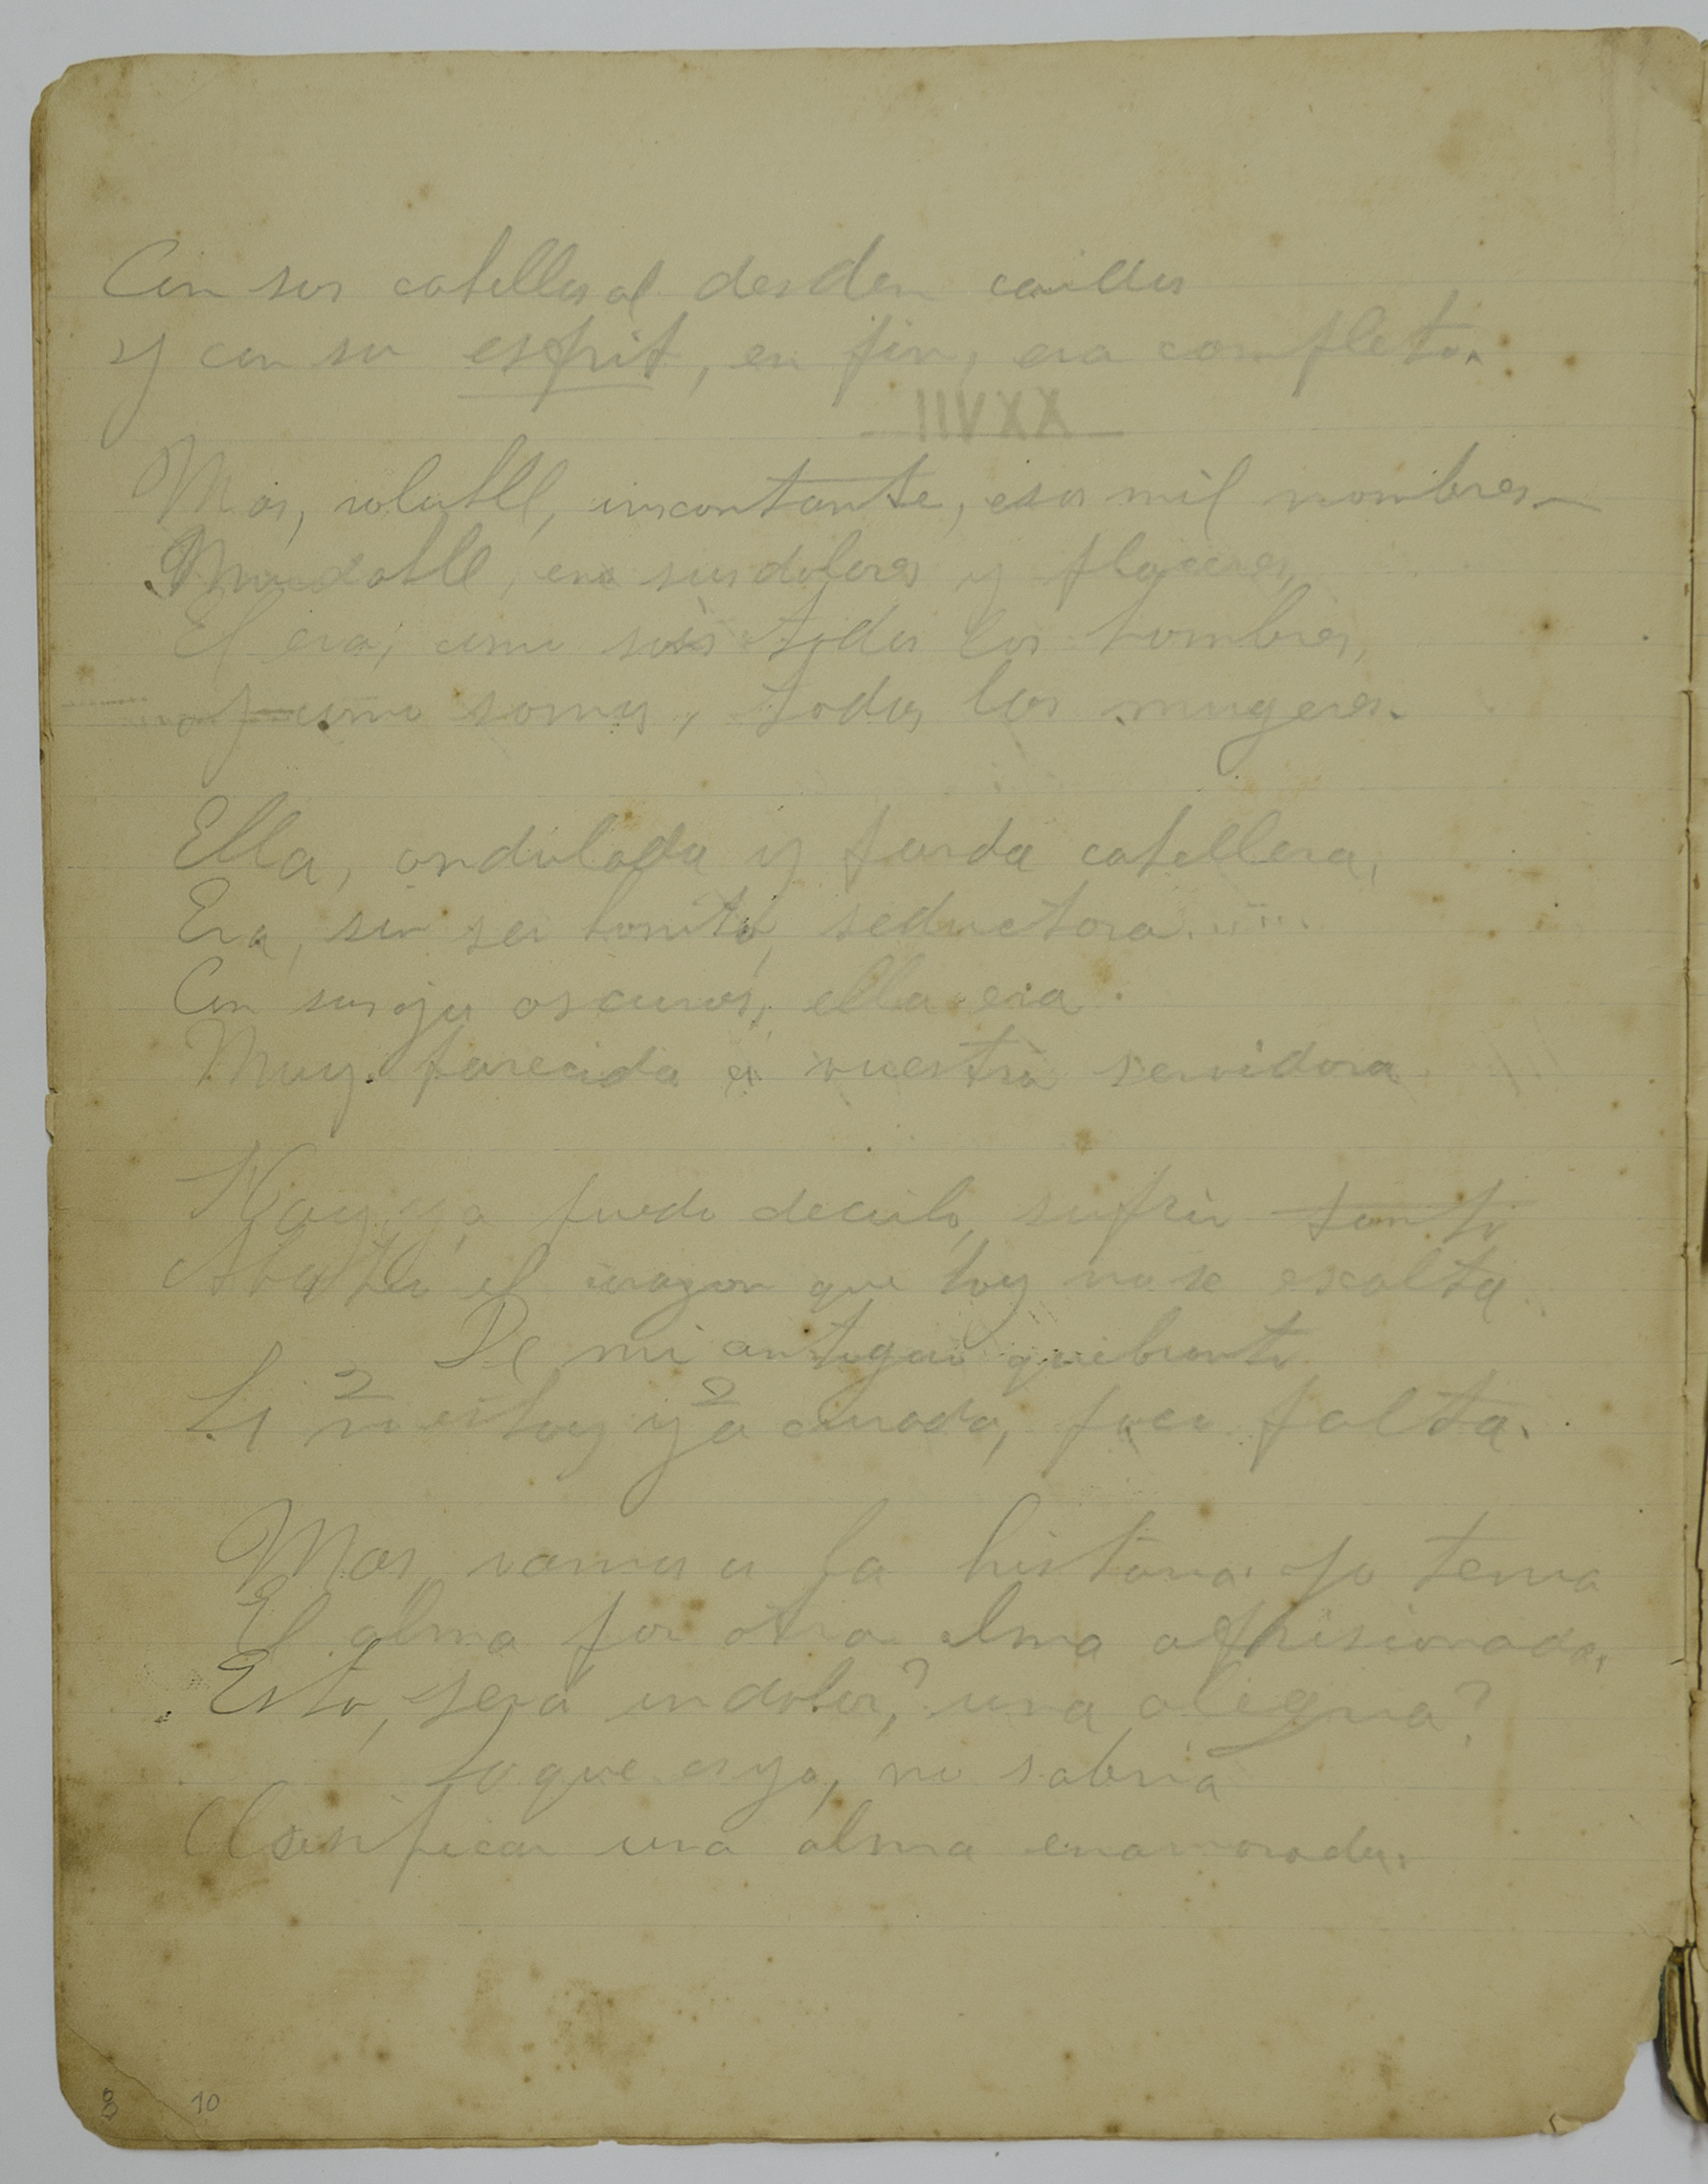 Con sus cabellos al desden caidos
y con su esprit, en fin, era completo.
Mas, voluble, incontante, esos mil nombres
Mudable, en sus dolores y placeres,
El era; como sois todos los hombres,
como somos, todas las mugeres.
Ella, ondulada y parda cabellera,
Era, sin ser bonita, seductora......
Con sus ojos oscuros, ella era
Muy parecida a vuestra servidora
Hoy, ya puedo decirlo, sufrir tanto
el corazon que hoy no se exalta
De mi antiguo quebranto
Si no estoy ya curada, poco falta.
Mas vamos a la historia. Yo tenia
El alma por otra alma aprisionada.
Esto, sera un dolor,? una alegria?
Lo que es yo, no sabria
Clasificar una alma enamorada.
8 10